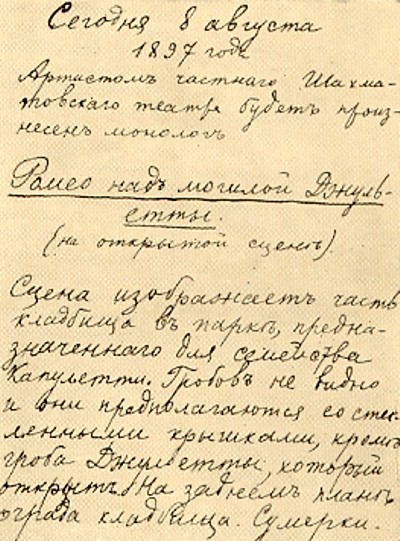 Сегодня 8 августа
1897 года
Артистомъ частнаго Шахма-
товскаго театра будетъ произ-
несенъ монологъ
Ромео надъ могилой Джуль-
етты.
(на открытой сценѣ).
Сцена изображаетъ часть
кладбища въ паркѣ, предна-
значеннаго для семейства
Капулетти. Гробовъ не видно
и они предполагаются со стек-
ленными крышками, кромѣ
гроба Джульетты, который
открытъ. На заднемъ планѣ
ограда кладбища. Сумерки.